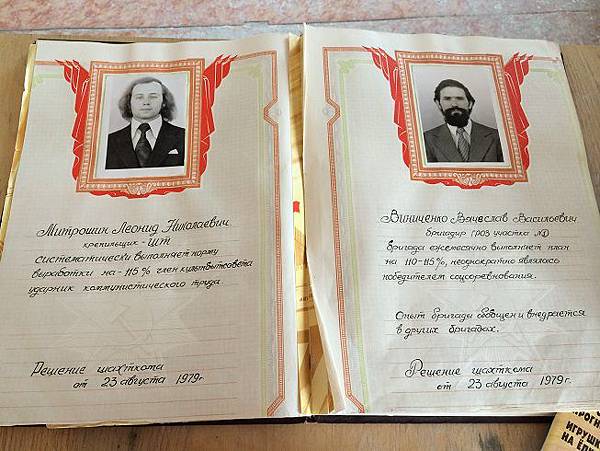 Митрошин Леонид Николаевич
крепильщик - ШТ
систематически выполняет норму
выработки на - 115% член культбытсовета
ударник коммунистического труда.
Решение шахткома
от 23 августа 1979г.
Виниченко Вячеслав Васильевич
бригадир ГРОЗ участка №1
бригада ежемесячно выполняет план
на 110-115%, неоднократно являлась
победителем соцсоревнования.
Опыт бригады обобщен и внедряется
в других бригадах.
Решение шахткома
от 23 августа 1979г.
ИГРУШК
НА ЁЛК